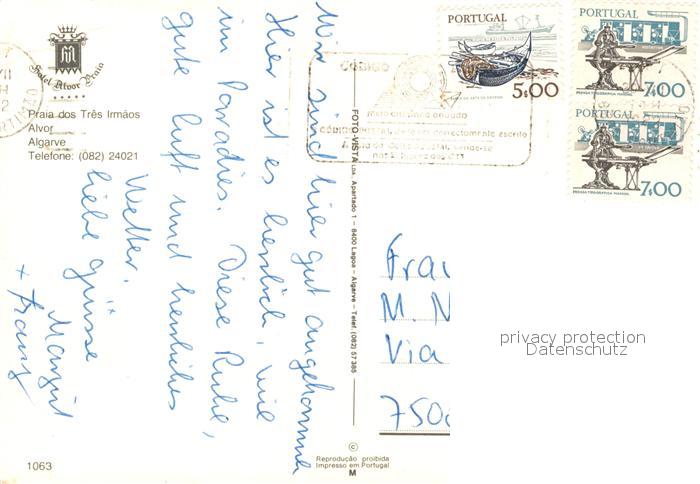 Hotel Alvor Praia
Praia dos Três Irmãos
Alvor
Algarve
Telefone: (082) 24021
Wir sind hier gut angekommen
Hier ist es herrlich, wie
im Paradies. Diese Ruhe,
gute Luft und herrliches
Wetter.
Liebe Grüsse
Margrit
+ Franz
1063
FOTO-VISTA LDA. Apartado 1 - 8400 Lagoa - Algarve - Telef. (082) 57385
©
Reprodução proibida
Impresso em Portugal
M
CÓDIGO
meio caminho andado
CÓDIGO POSTAL, deve ser correctamente escrito
PORTUGAL
5$00
PORTUGAL
PRENSA TIPOGRÁFICA MANUAL
7$00
PORTUGAL
PRENSA TIPOGRÁFICA MANUAL
7$00
Frau
M. N
Via
750
privacy protection
Datenschutz